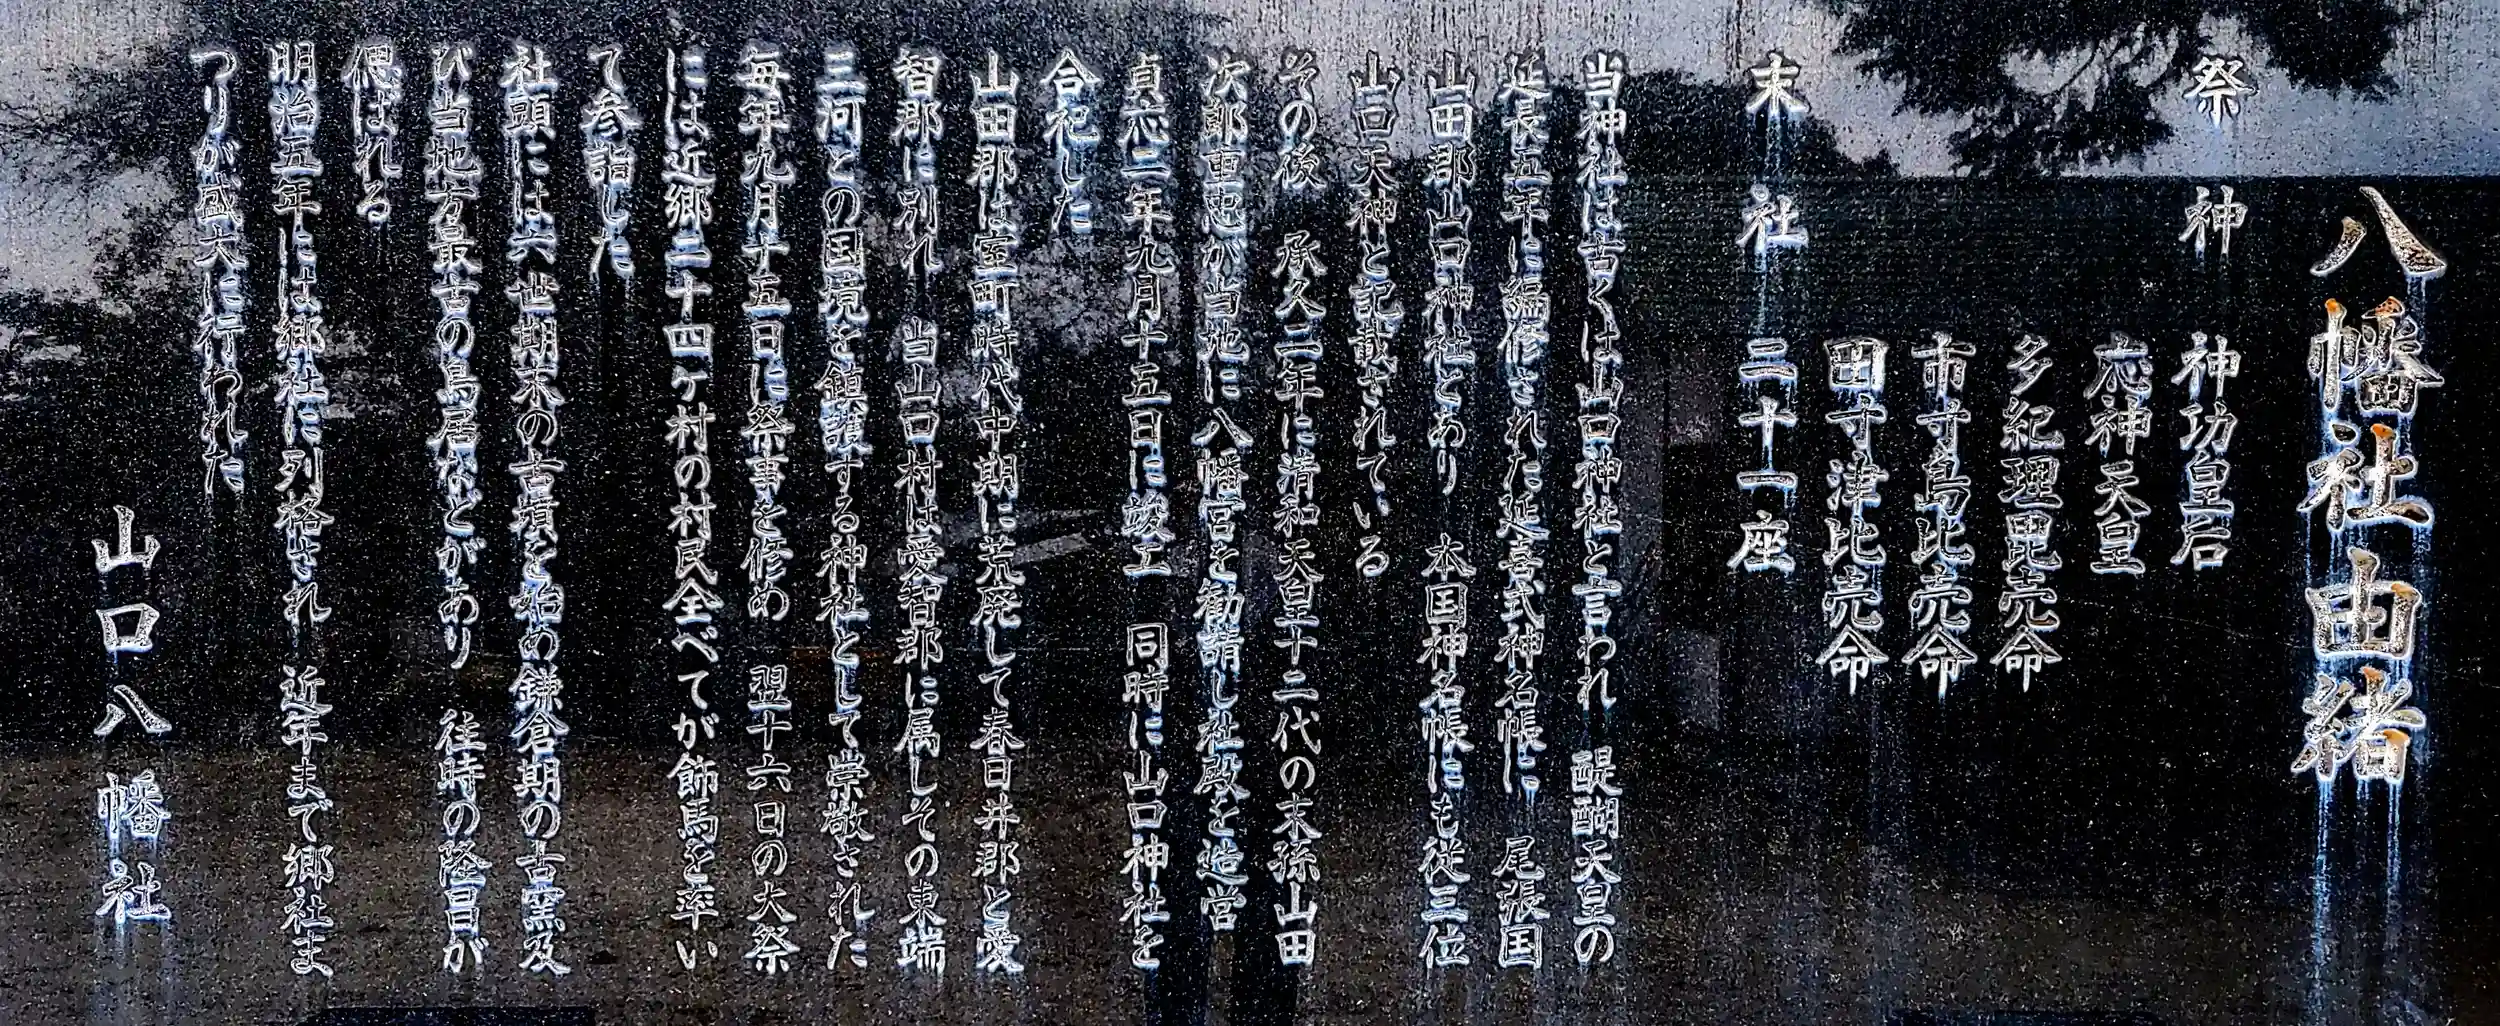 八幡社由緒
祭神 神功皇后
応神天皇
多紀理毘売命
市寸島比売命
田寸津比売命
末社 二十一座
当神社は古くは山口神社と言われ 醍醐天皇の
延長五年に編修された延喜式神名帳に 尾張国
山田郡山口神社とあり 本国神名帳にも従三位
山口天神と記載されている
その後 承久二年に清和天皇十二代の末孫山田
次郎重忠が当地に八幡宮を勧請し社殿を造営
貞応二年九月十五日に竣工 同時に山口神社を
合祀した
山田郡は室町時代中期に荒廃して春日井郡と愛
智郡に別れ 当山口村は愛智郡に属しその東端
三河との国境を鎮護する神社として崇敬された
毎年九月十五日に祭事を修め 翌十六日の大祭
には近郷二十四ケ村の村民全べてが飾馬を率い
て参詣した
社頭には六世期末の古墳を始め鎌倉期の古窯及
び当地方最古の鳥居などがあり 往時の隆昌が
偲はれる
明治五年には郷社に列格され 近年まで郷社ま
つりが盛大に行われた
山口八幡社